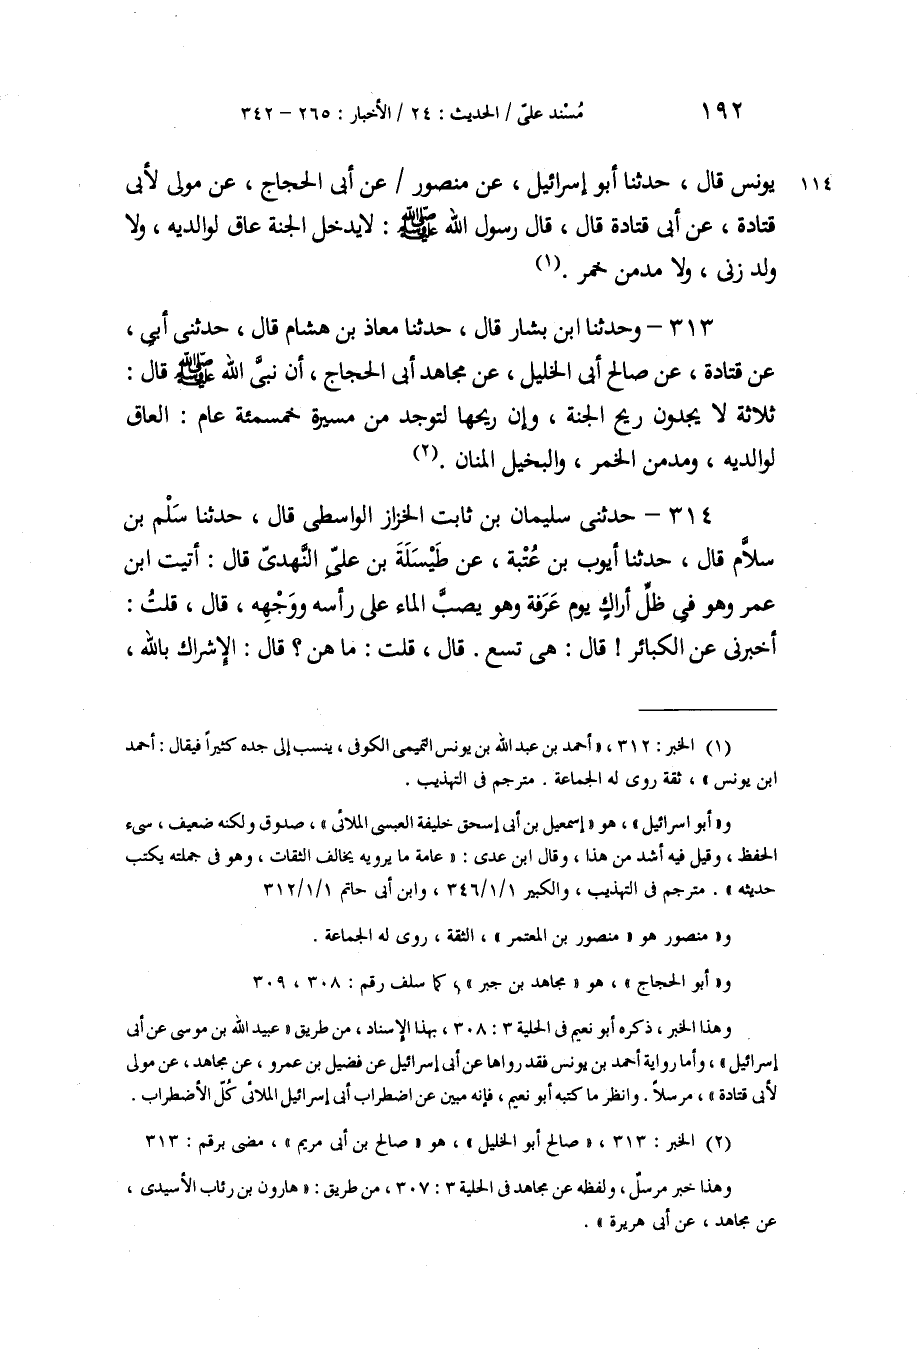 ١٩٢ مُسْند علىّ / الحديث : ٢٤ / الأخبار : ٢٦٥ – ٣٤٢
١١٤ يونس قال ، حدثنا أبو إسرائيل ، عن منصور / عن أبى الحجاج ، عن مولى لأبى
قتادة ، عن أبى قتادة قال ، قال رسول الله ﷺ : لايدخل الجنة عاق لوالديه ، ولا
ولد زنى ، ولا مدمن خمر .(١)
٣١٣ – وحدثنا ابن بشار قال ، حدثنا معاذ بن هشام قال ، حدثنى أبي ،
عن قتادة ، عن صالح أبى الخليل ، عن مجاهد أبى الحجاج ، أن نبىَّ الله ﷺ قال :
ثلاثة لا يجدون ريح الجنة ، وإن ريحها لتوجد من مسيرة خمسمئة عام : العاق
لوالديه ، ومدمن الخمر ، والبخيل المنان .(٢)
٣١٤ – حدثنى سليمان بن ثابت الخزاز الواسطى قال ، حدثنا سَلْم بن
سلاَّم قال ، حدثنا أيوب بن عُتْبة ، عن طَيْسَلَةَ بن علىّ النَّهدىّ قال : أتيت ابن
عمر وهو في ظلِّ أراكٍ يوم عَرَفة وهو يصبَّ الماء على رأسه ووَجْهِه ، قال ، قلتُ :
أخبرنى عن الكبائر ! قال : هى تسع . قال ، قلت : ما هن ؟ قال : الإشراك بالله ،
(١) الخبر : ٣١٢ ، « أحمد بن عبد الله بن يونس التميمى الكوفى ، ينسب إلى جده كثيراً فيقال : أحمد
ابن يونس » ، ثقة روى له الجماعة . مترجم فى التهذيب .
و« أبو اسرائيل » ، هو « إسمعيل بن أبى إسحق خليفة العبسى الملائى » ، صدوق ولكنه ضعيف ، سىء
الحفظ ، وقيل فيه أشد من هذا ، وقال ابن عدى : « عامة ما يرويه يخالف الثقات ، وهو فى جملته يكتب
حديثه » . مترجم فى التهذيب ، والكبير ٣٤٦/١/١ ، وابن أبى حاتم ٣١٢/١/١
و« منصور هو « منصور بن المعتمر » ، الثقة ، روى له الجماعة .
و« أبو الحجاج » ، هو « مجاهد بن جبر » ، كما سلف رقم : ٣٠٨ ، ٣٠٩
وهذا الخبر ، ذكره أبو نعيم فى الحلية ٣ : ٣٠٨ ، بهذا الإسناد ، من طريق « عبيد الله بن موسى عن أبى
إسرائيل » ، وأما رواية أحمد بن يونس فقد رواها عن أبى إسرائيل عن فضيل بن عمرو ، عن مجاهد ، عن مولى
لأبى قتادة » ، مرسلاً . وانظر ما كتبه أبو نعيم ، فإنه مبين عن اضطراب أبى إسرائيل الملائى كُلّ الأضطراب .
(٢) الخبر : ٣١٣ ، « صالح أبو الخليل » ، هو « صالح بن أبى مريم » ، مضى برقم : ٣١٣
وهذا خبر مرسلٌ ، ولفظه عن مجاهد فى الحلية ٣ : ٣٠٧ ، من طريق : « هارون بن رئاب الأسيدى ،
عن مجاهد ، عن أبى هريرة » .